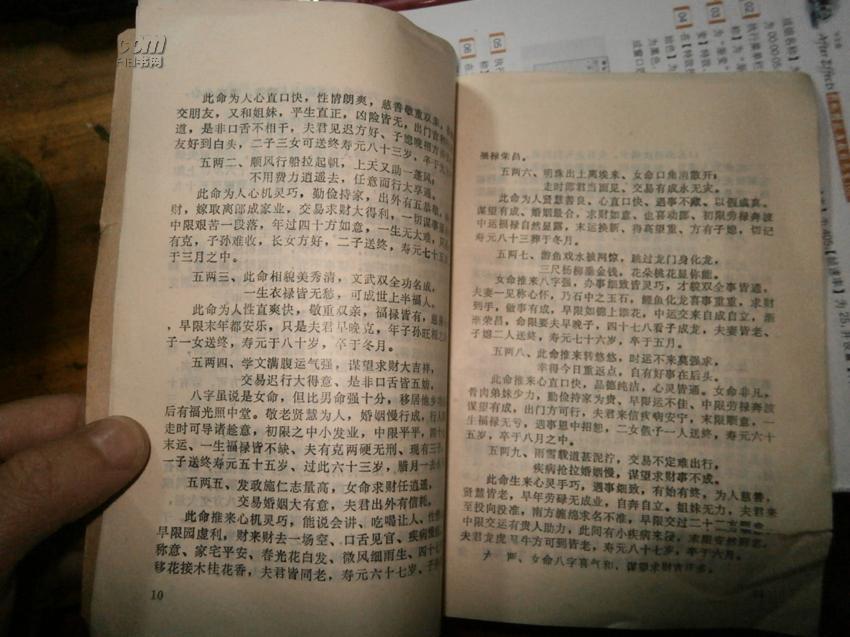 此命为人心直口快，性情朗爽，慈善敬重双亲，
交朋友，又和姐妹，平生直正，凶险皆无，出门
道，是非口舌不相干，夫君见迟方好、子媳晚相方
友好到白头，二子三女可送终寿元八十三岁、卒于
五两二、顺风行船拉起帆，上天又助一蓬风，
不用费力逍遥去，任意而行大亨通。
此命为人心机灵巧，勤俭持家，出外有五恭敬，
财，嫁取离郎成家业，交易求财大得利，一切谋事
中限艰苦一段落，年过四十方如意，一生无大难，
有克，子孙难收，长女方好，二子送终，寿元七十
于三月之中。
五两三、此命相貌美秀清，文武双全功名成，
一生衣禄皆无愁，可成世上半福人。
此命为人性直爽快，敬重双亲，福禄皆有，
，早限末年都安乐，只是夫君早晚克，年子孙旺相
子一女送终，寿元于八十岁，卒于冬月。
五两四、学文满腹运气强，谋望求财大吉祥，
交易迟行大得意、是非口舌皆五妨，
八字虽说是女命，但比男命强十分，移居他乡
后有福光照中堂。敬老贤慧为人，婚姻慢行成，行人
走时可导诸趁意，初限之中小发业，中限平平，四十
末运、一生福禄皆不缺、夫有克两硬无刑、现有三子
一子送终寿元五十五岁、过此六十三岁，腊月一去
五两五、发政施仁志量高，女命求财任逍遥，
交易婚姻大有意，夫君出外有信耗。
此命推来心机灵巧，能说会讲、吃喝让人、性情
早限园虚利，财来财去一场空、口舌见官、疾病
称意、家宅平安、春光花白发、微风细雨生、四十七
移花接木桂花香，夫君皆同老，寿元六十七岁、子
10
福禄荣昌。
五两六、明珠出土离埃来、女命口角消散开；
走时郎君当面见、交易有成永无灾。
此命为人贤慧善良、心直口快、遇事不藏、以假成真、
谋望有成、婚姻最合，求财如意、也喜动郎、初限劳禄奔波
中运福禄自然显露，末运换新、得高望重、方有子媳，切记
寿元八十三葬于冬月。
五两七、游鱼戏水被网惊，跳过龙门身化龙，
三尺杨柳垂金钱，花朵桃花显你能。
女命推来八字强，办事细致皆灵巧，才貌双全事皆通，
夫妻一见称心怀，乃石中之玉石，鲤鱼化龙喜事重重，求财
到手，做事有成，早限如锦上添花，中运交来自成自立，渐
渐荣昌，命限要夫早晚子，四十七八看子成龙，夫妻皆老、
子媳二人送终，寿元七十六岁，卒于五月。
五两八、此命推来转悠悠，时运不来莫强求，
幸得今日重返点，自有好事在后头。
此命推来心直口快，品德纯洁，心灵皆通。女命非凡，
骨肉弟妹少力，勤俭持家为贵、早限运不佳、中限劳禄奔波
谋望有成，出门方可行，夫君来信疾病安宁，末限顺意，一
生福禄无亏，遇事恩中招怨，二女仨子一人送终，寿元六十
五岁，卒于八月之中。
五两九、雨雪载道甚泥泞，交易不定难出行，
疾病抢拉婚姻慢，谋望求财事不成。
此命生来心灵手巧，遇事细致，有始有终，为人慈善，
贤慧皆老，早年劳碌无成业，自奔自立、姐妹无力，夫君来
至投向没准，南方旎绝求名不准，早限交过二十二方
中限交运有贵人助力，此间有小疾病来没，末限安然
夫君龙虎马牛方可到皆老，寿元八十岁，卒于六月。
六两、女命八字喜气和、谋望求财吉祥多，